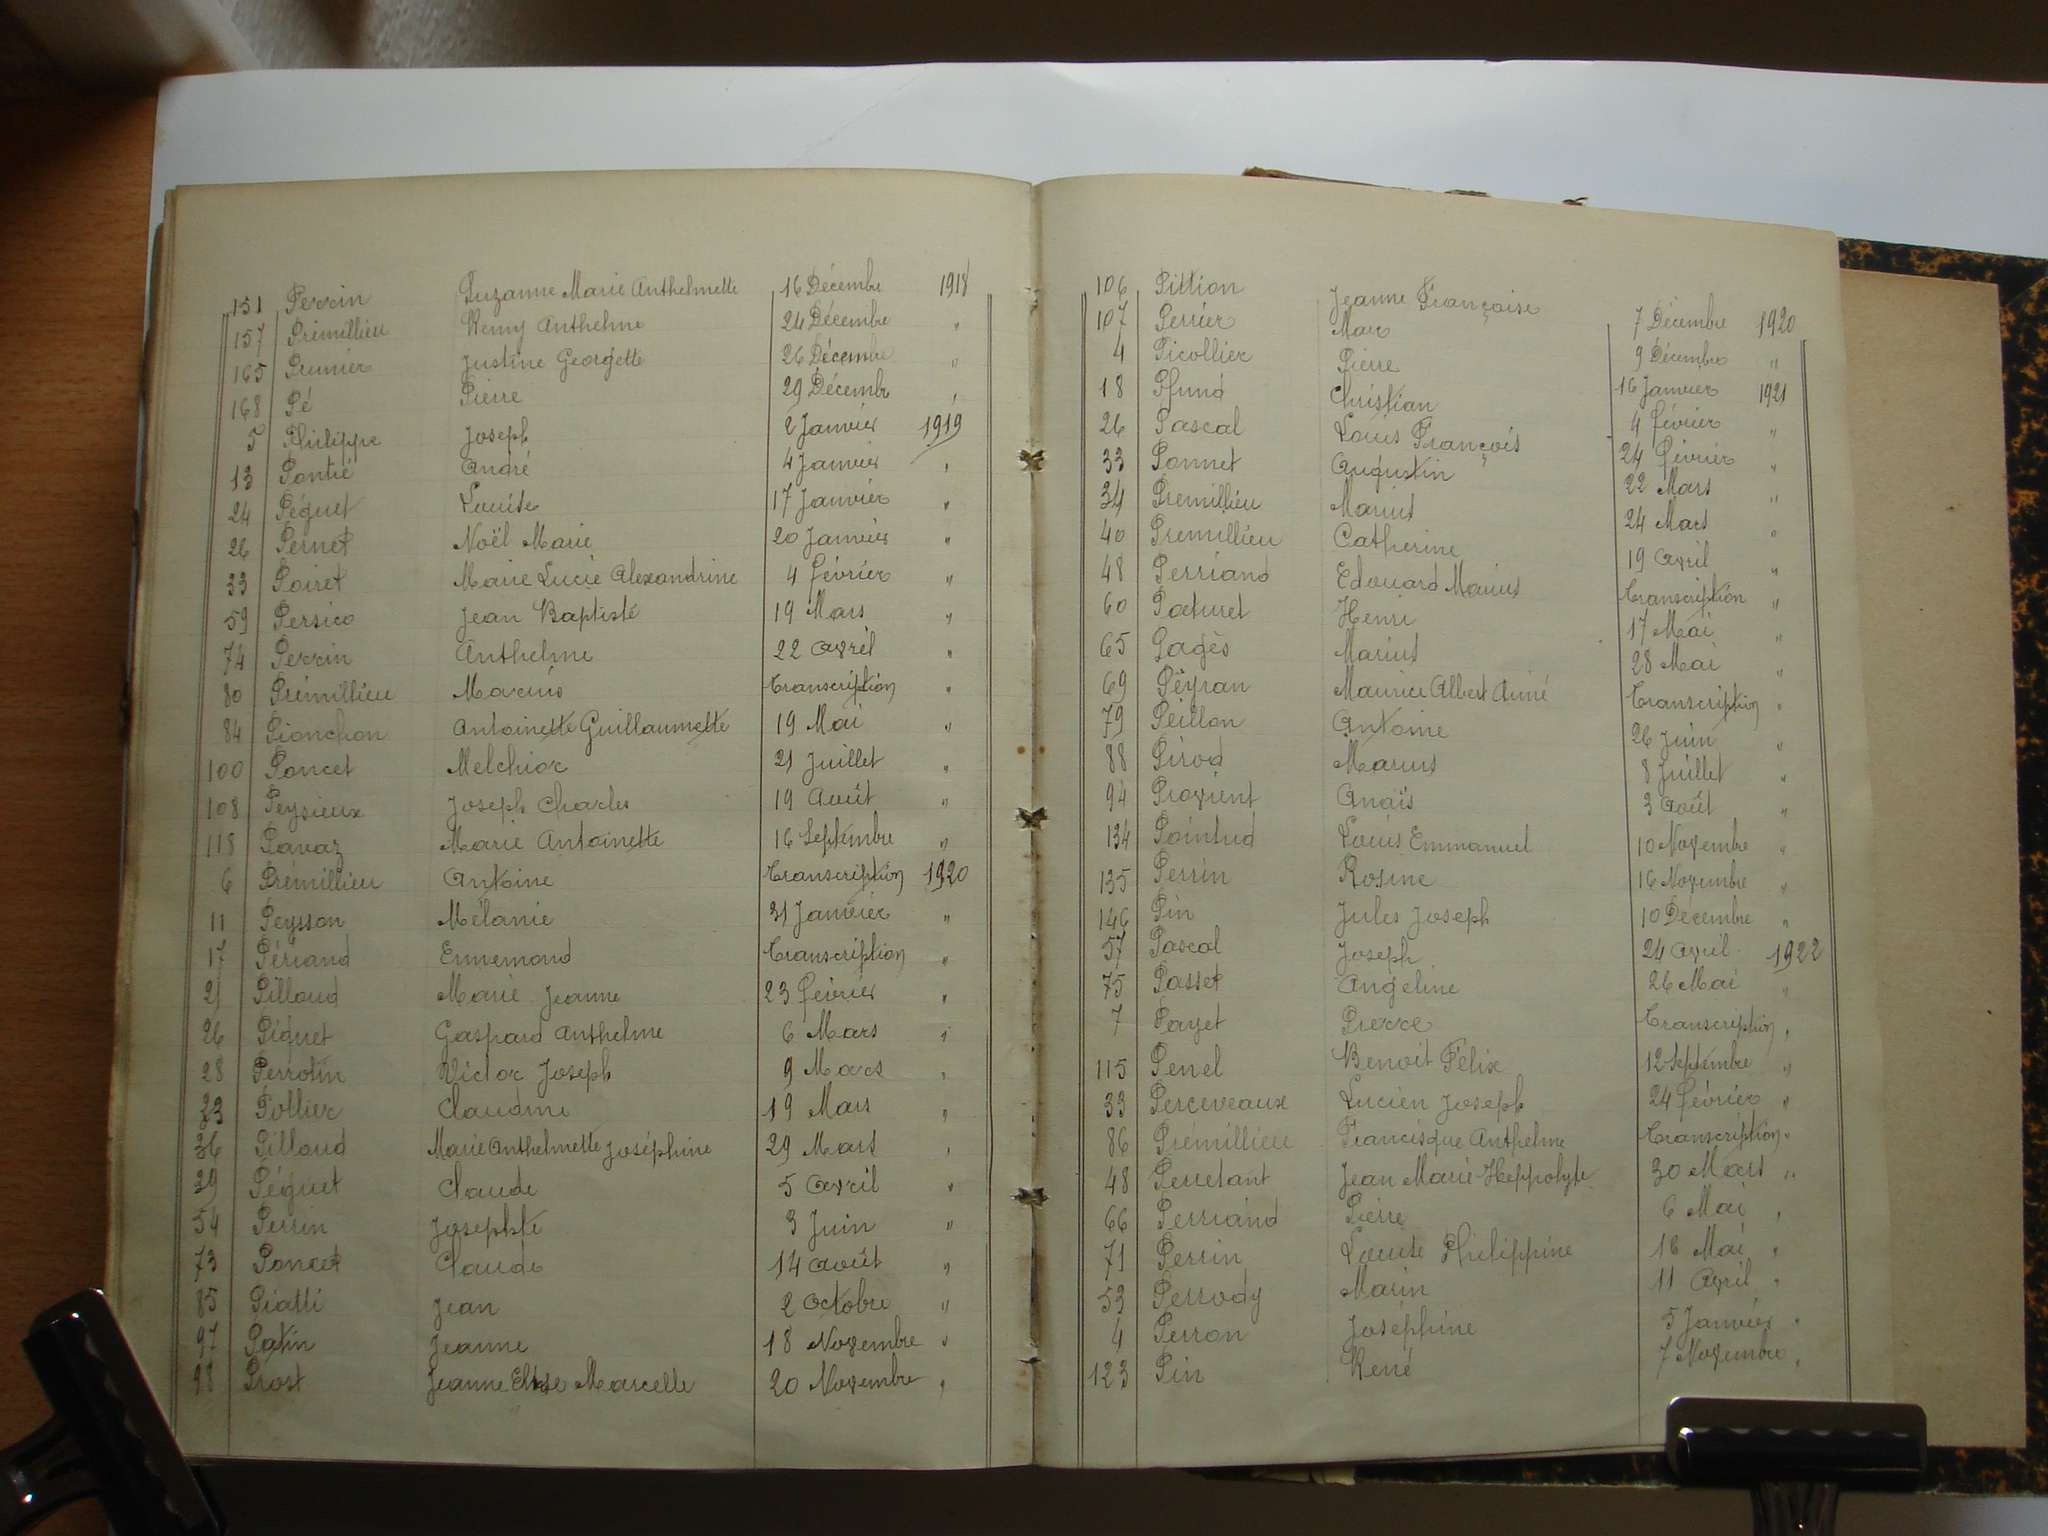 151 Perrin Suzanne Marie Anthelmette 16 Décembre 1918
157 Prémillieu Rémy Anthelme 24 Décembre "
165 Prunier Justine Georgette 26 Décembre "
168 Pé Pierre 29 Décembre "
5 Philippe Joseph 2 Janvier 1919
13 Pontié André 4 Janvier "
24 Péguet Louise 17 Janvier "
26 Pernet Noël Marie 20 Janvier "
33 Poiret Marie Lucie Alexandrine 4 février "
59 Persico Jean Baptiste 19 Mars "
74 Perrin Anthelme 22 Avril "
80 Prémillieu Marius Transcription "
84 Pionchon Antoinette Guillaumette 19 Mai "
100 Poncet Melchior 21 Juillet "
108 Peysieux Joseph Charles 19 Août "
118 Pavaz Marie Antoinette 16 Septembre "
6 Premillieu Antoine Transcription 1920
11 Peysson Mélanie 31 Janvier "
17 Périand Ennemond Transcription "
21 Pillaud Marie Jeanne 23 février "
26 Piguet Gaspard Anthelme 6 Mars "
28 Perrotin Victor Joseph 9 Mars "
33 Pollier 19 Mars "
36 Pillaud Marie Anthelmette Joséphine 29 Mars "
39 Péguet Claude 5 Avril "
54 Perrin Josephte 3 Juin "
73 Poncet Claude 14 Août "
85 Piatti Jean 2 Octobre "
97 Patin Jeanne 18 Novembre "
98 Prost Jeanne Elise Marcelle 20 Novembre "
106 Pittion Jeanne Françoise 7 Décembre 1920
107 Perrier Marc 9 Décembre "
4 Picollier Pierre 16 Janvier 1921
18 Pfund Christian 4 février "
26 Pascal Louis François 24 février "
33 Ponnet Augustin 22 Mars "
34 Premillieu Marius 24 Mars "
40 Premillieu Catherine 19 Avril "
48 Perriand Edouard Marius Transcription "
60 Paturet Henri 17 Mai "
65 Pagès Marius 28 Mai "
69 Peyran Maurice Albert Aimé Transcription "
79 Peillon Antoine 26 Juin "
88 Pirod Marius 8 Juillet "
94 Provient Anaïs 3 Août "
134 Pointud Louis Emmanuel 10 Novembre "
135 Perrin Rosine 16 Novembre "
146 Pin Jules Joseph 10 Décembre "
57 Pascal Joseph 24 Avril 1922
75 Passet Angeline 26 Mai "
7 Payet Pierre Transcription "
115 Penel Benoit Félix 12 Septembre "
33 Perceveaux Lucien Joseph 24 février "
86 Prémillieu Francisque Anthelme Transcription "
48 Perretant Jean Marie Hyppolyte 30 Mars "
66 Perriand Pierre 6 Mai "
71 Perrin Louise Philippine 16 Mai "
53 Perrody Marin 11 Avril "
4 Perron Joséphine 5 Janvier "
123 Pin René 7 Novembre "